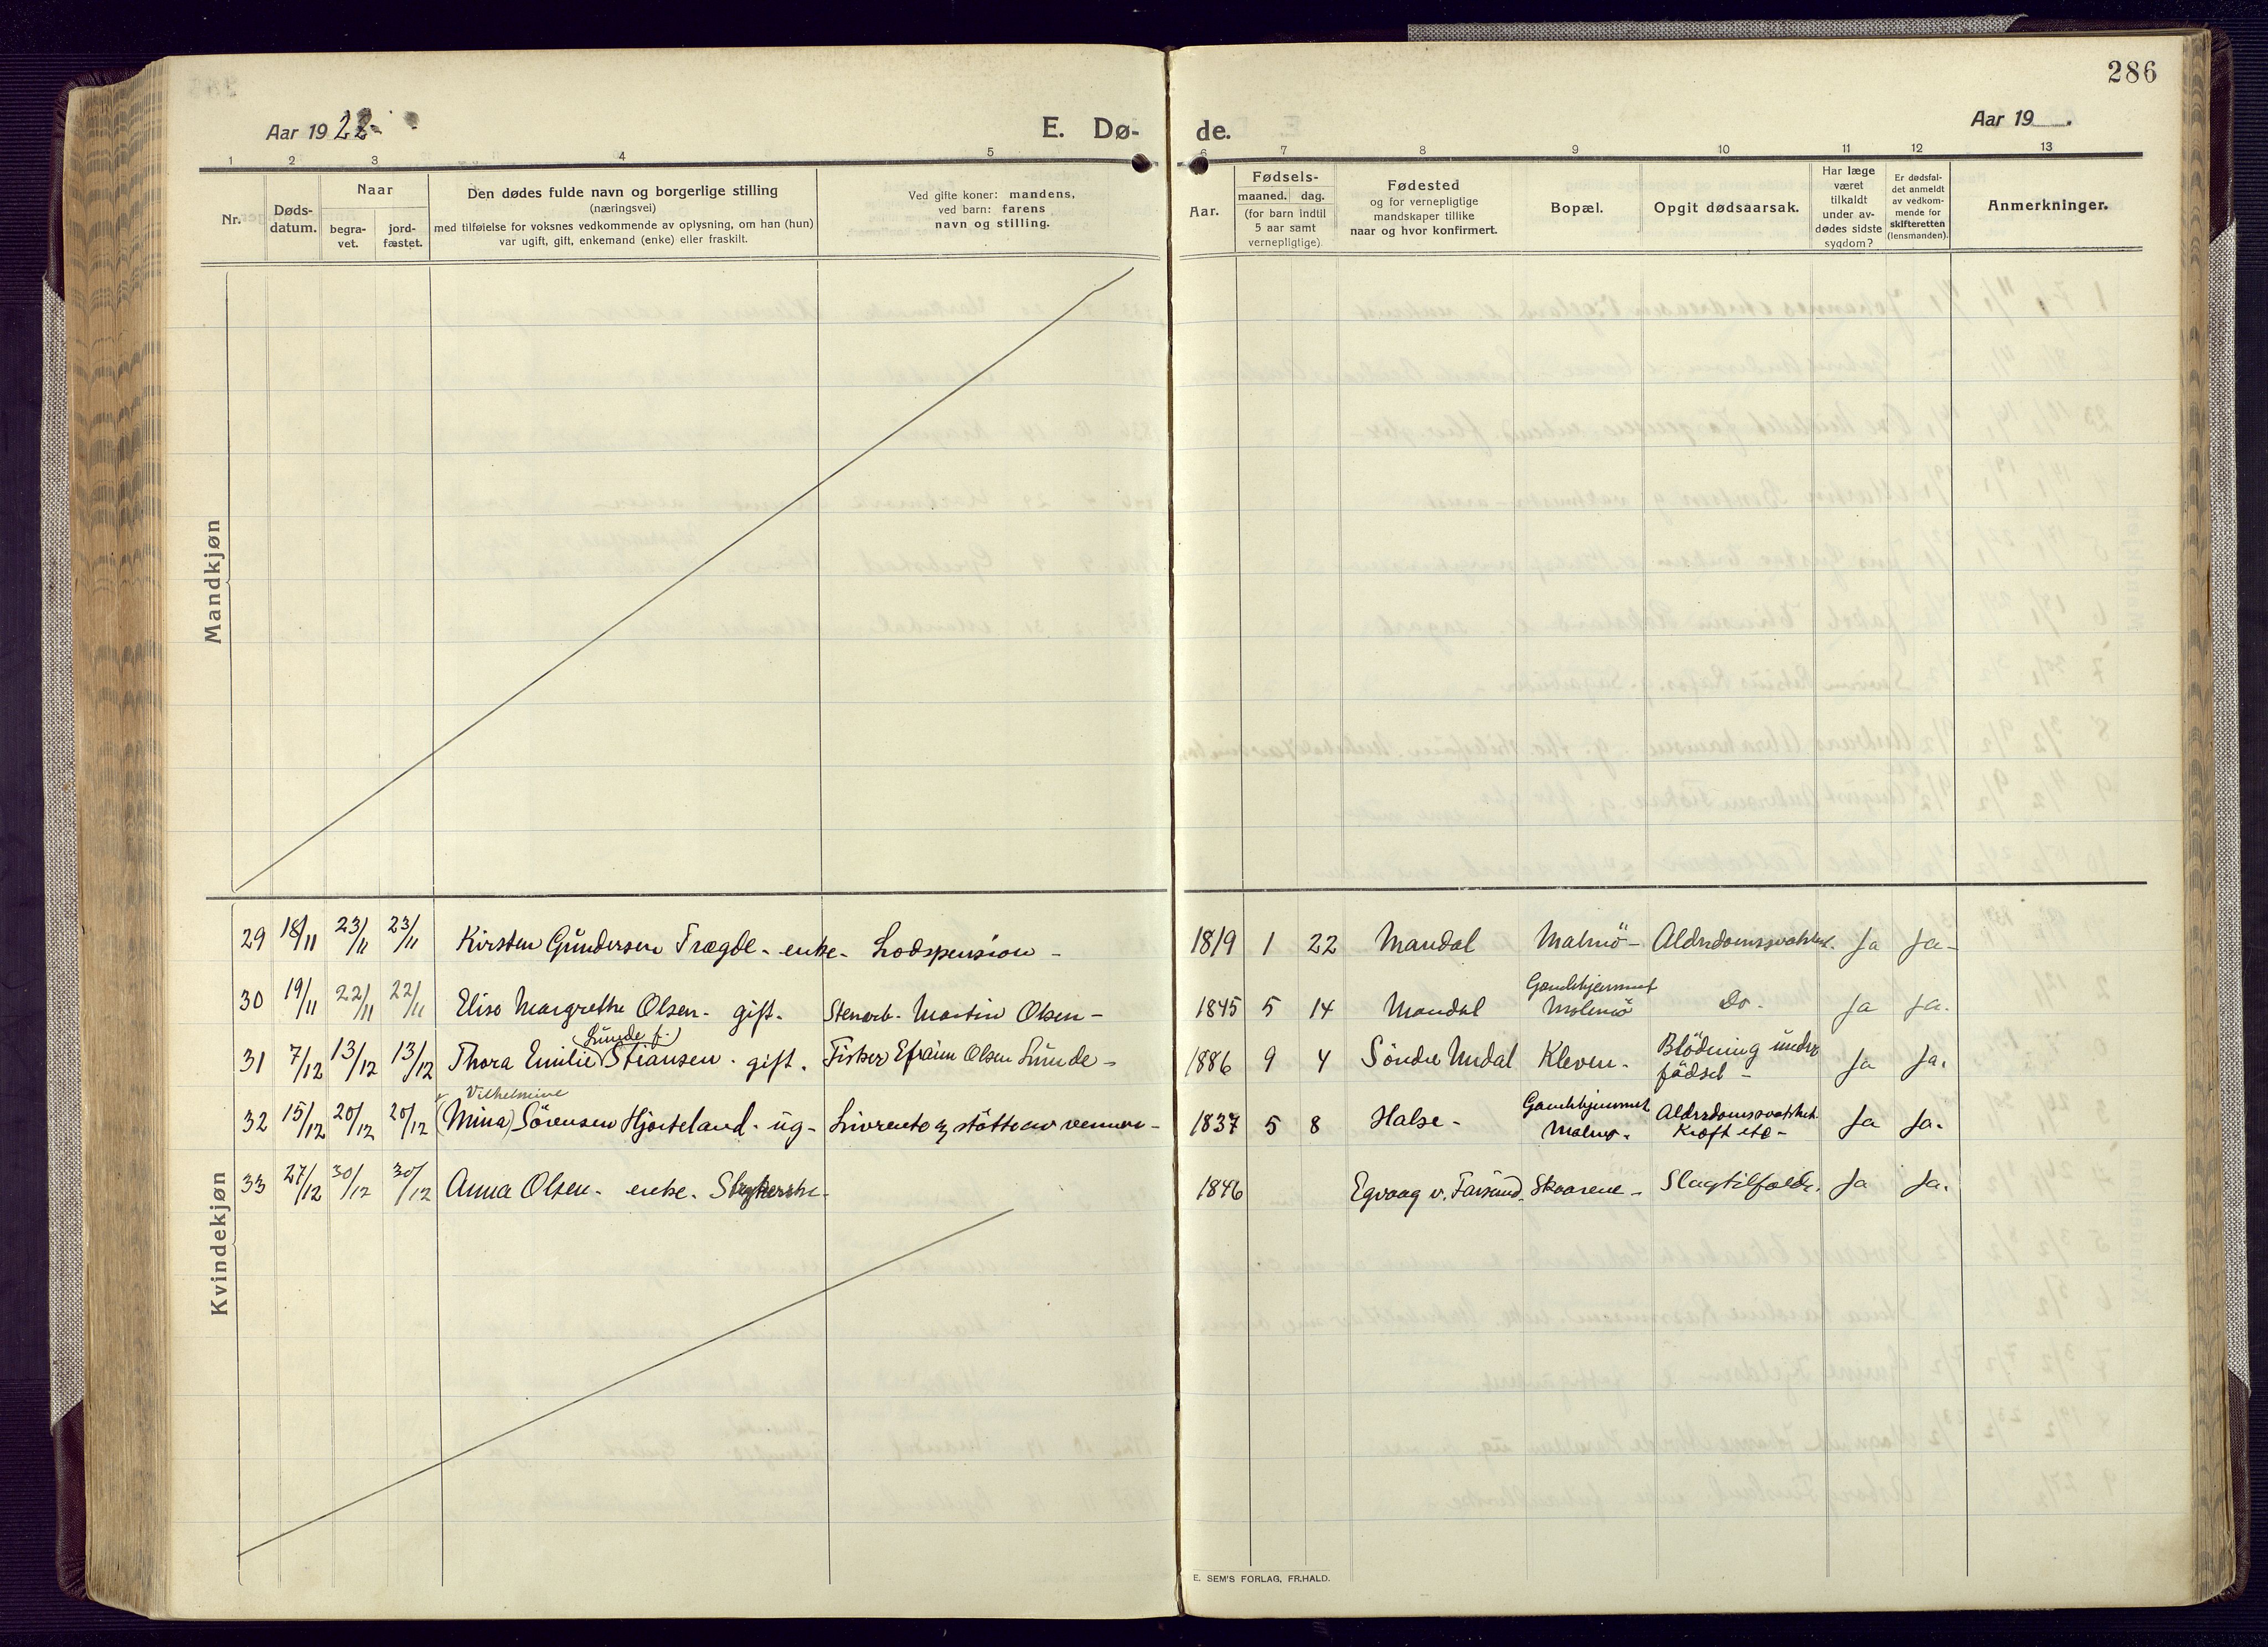 286
Aar 1922-
E. Dø-
de.
Aar 19 .
1 2 3 4 5 6 7 8 9 10 11 12 13
Nr.
Døds-
datum.
Naar
begra-
vet.
jord-
fæstet.
Den dødes fulde navn og borgerlige stilling
(næringsvei)
med tilføielse for voksnes vedkommende av oplysning, om han (hun)
var ugift, gift, enkemand (enke) eller fraskilt.
Ved gifte koner: mandens,
ved barn: farens
navn og stilling.
Aar.
Fødsels-
maaned. dag.
(for barn indtil
5 aar samt
vernepligtige)
Fødested
og for vernepligtige
mandskaper tillike
naar og hvor konfirmert.
Bopæl.
Opgit dødsaarsak.
Har læge
været
tilkaldt
under av-
dødes sidste
sygdom?
Er dødsfal-
det anmeldt
av vedkom-
mende for
skifteretten
(lensmanden).
Anmerkninger.
Mandkjøn
Kvindekjøn
29 18/11 23/11 23/11 Kirsten Gundersen Trægde - enke - Lodspension - 1819 1 22 Mandal Malmö - Ja Ja -
30 19/11 22/11 22/11 Elise Margrethe Olsen - gift. Stenarb. Martin Olsen - 1845 5 14 Mandal Gamlehjemmet Malmö Do - Ja Ja.
Lunde f.
31 7/12 13/12 13/12 Thora Emilie Stiansen - gift. Fisker Efraim Olsen Lunde - 1886 9 4 Söndre Undal Kleven - Blödning under fødsel - Ja Ja.
Vilhelmine
32 15/12 20/12 20/12 (Mina) Sörensen Hjorteland - ug - Livrente & störte av venner - 1837 5 8 Halse - Gamlehjemmet Malmø - Aldersdomssvakhet Kræft etc - Ja Ja.
33 27/12 30/12 30/12 Anna Olsen - enke. Strykerske - 1846 Egvaag v. Farsund - Skaarene - Slagtilfælde. Ja Ja.
E. SEM'S FORLAG, FR.HALD.